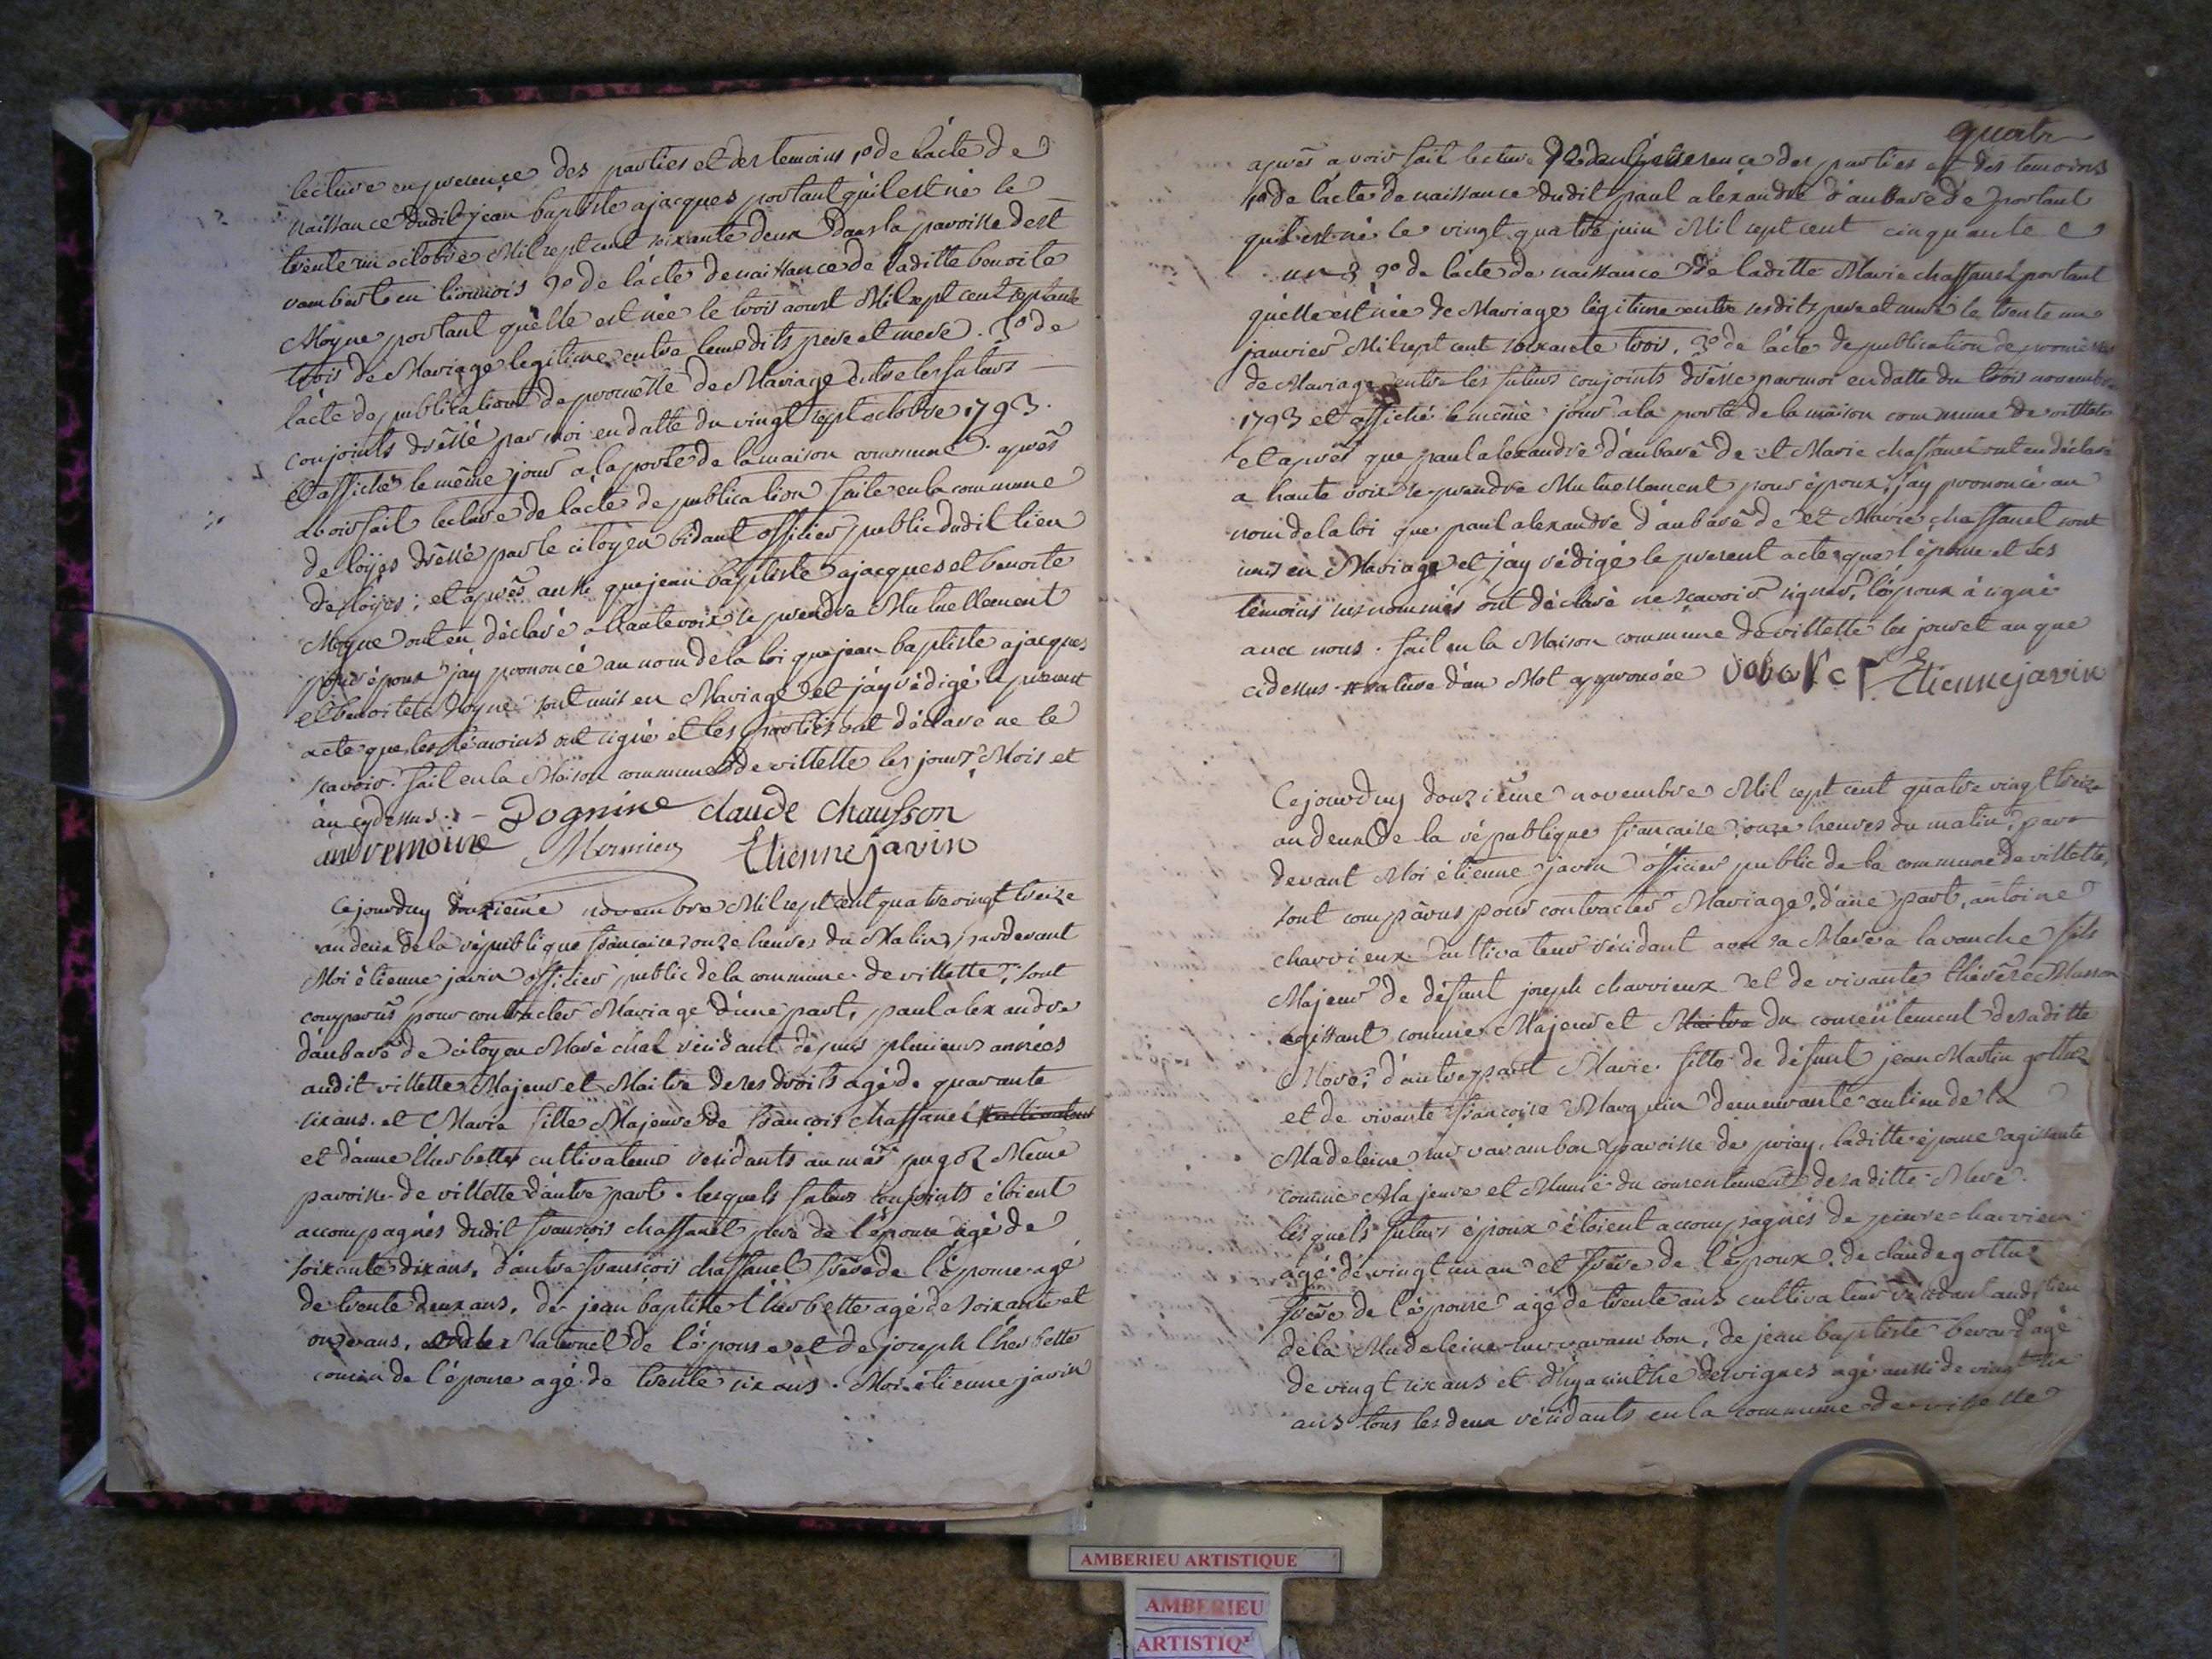 lecture en presence des parties et des temoins 1o de l'acte de
naissance dudit jean baptiste ajacques portant qu'il est né le
trente un octobre Mil sept cent soixante deux dans la paroisse de st
rambert en lionnois 2o de l'acte de naissance de laditte benoite
Moyne portant quelle est née le trois aoust Mil sept cent soptante
trois de Mariage legitime entre leurs dits pere et mere. 3o de
l'acte de publication de promesse de Mariage entre les futurs
conjoints dressé par moi en datte du vingt sept octobre 1793.
et affiché le même jour a la porte de la maison commune. après
avoir fait lecture de l'acte de publication faite en la commune
de loÿes dressé par le citoyen bidant officier public dudit lieu
de loÿes; et après aussi que jean baptiste ajacques et benoite
Moyne ont eu déclaré a haute voix se prendre Mutuellement
pour époux j'ay prononcé au nom de la loi que jean baptiste ajacques
et benoite Moyne sont unis en Mariage et j'ay rédigé le present
acte que les témoins ont signé et les parties ont déclaré ne le
scavoir. fait en la Maison commune de villette les jour, Mois et
an cydessus. - Dognine claude chausson
Mermier Etienne javin
Cejourduy douzième novembre Mil sept cent quatre vingt treize
an deux de la république francaise onze heures du Matin, pardevant
Moi étienne javin officier public de la commune de villette, sont
comparus pour contracter Mariage d'une part, paul alexandre
d'aubarede citoyen Maréchal résidant depuis plusieurs années
audit villette Majeur et Maitre de ses droits agé de quarante
six ans. et Marie fille Majeure de François chaffanel
et d'anne therbette cultivateurs residants au mas pugoz Même
paroisse de villette d'autre part. lesquels futurs conjoints étoient
accompagnés dudit francois chaffanel pere de l'épouse agé de
soixante dix ans, d'autre francois chaffanel frere de l'épouse agé
de trente deux ans, de jean baptiste therbette agé de soixante et
onze ans, oncle Maternel de l'épouse et de joseph therbette
cousin de l'épouse agé de trente six ans. Moi étienne javin
quatre
après avoir fait lecture en presence des parties et des temoins
1o de l'acte de naissance dudit paul alexandre d'aubarede portant
quil est né le vingt quatre juin Mil sept cent cinquante
2o de l'acte de naissance de laditte Marie chaffanel portant
quelle est née de Mariage légitime entre sesdits pere et mere le trente un
janvier Mil sept cent soixante trois. 3o de l'acte de publication de promesses
de Mariage entre les futurs conjoints dressé par moi en datte du trois novembre
1793 et affiché le même jour a la porte de la maison commune de villette
et après que paul alexandre d'aubarede et Marie chaffanel ont eu déclaré
a haute voix se prendre Mutuellement pour époux, j'ay prononcé au
nom de la loi que paul alexandre d'aubarede et Marie chaffanel sont
unis en Mariage et j'ay rédigé le present acte que l'épouse et les
témoins susnommés ont déclaré ne scavoir signer, l'époux a signé
avec nous. fait en la Maison commune de villette les jour et an que
cidessus. rature d'un Mot approuvée Etienne javin
Cejourduy douzième novembre Mil sept cent quatre vingt treize
an deux de la république francaise onze heures du matin, par
devant Moi étienne javin officier public de la commune de villette,
sont comparus pour contracter Mariage, d'une part, antoine
charvieux cultivateur résidant avec sa Mere a lavanche fils
Majeur de défunt joseph charvieux et de vivante thérèse Musson
agissant comme Majeur et Maitre du consentement de saditte
Mere, d'autre part Marie fille de défunt jean Martin gottuz
et de vivante françoise Marguin demeurante au lieu de la
Madeleine sur varambon paroisse de priay, laditte épouse agissante
comme Majeure et Munie du consentement de saditte Mere.
lesquels futurs époux étoient accompagnés de pierre charvieux
agé de vingt un an et frere de l'époux, de claude gottuz
frere de l'épouse agé de trente ans cultivateur résidant audit lieu
de la Madeleine sur varambon, de jean baptiste berard agé
de vingt six ans et d'hyacinthe desvignes agé aussi de vingt six
ans tous les deux résidants en la commune de villette
AMBERIEU ARTISTIQUE
AMBERIEU
ARTISTIQ